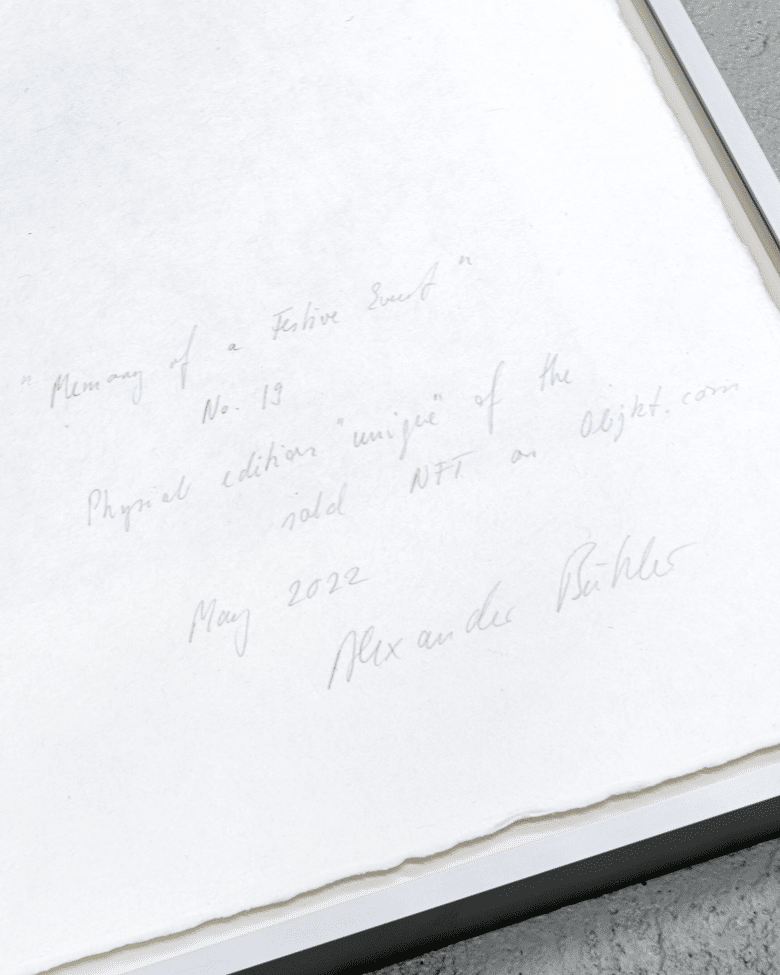 "Memory of a Festive Event"
No. 19
Physical edition "unique" of the
sold NFT on Objkt.com
May 2022
Alexander Bühler